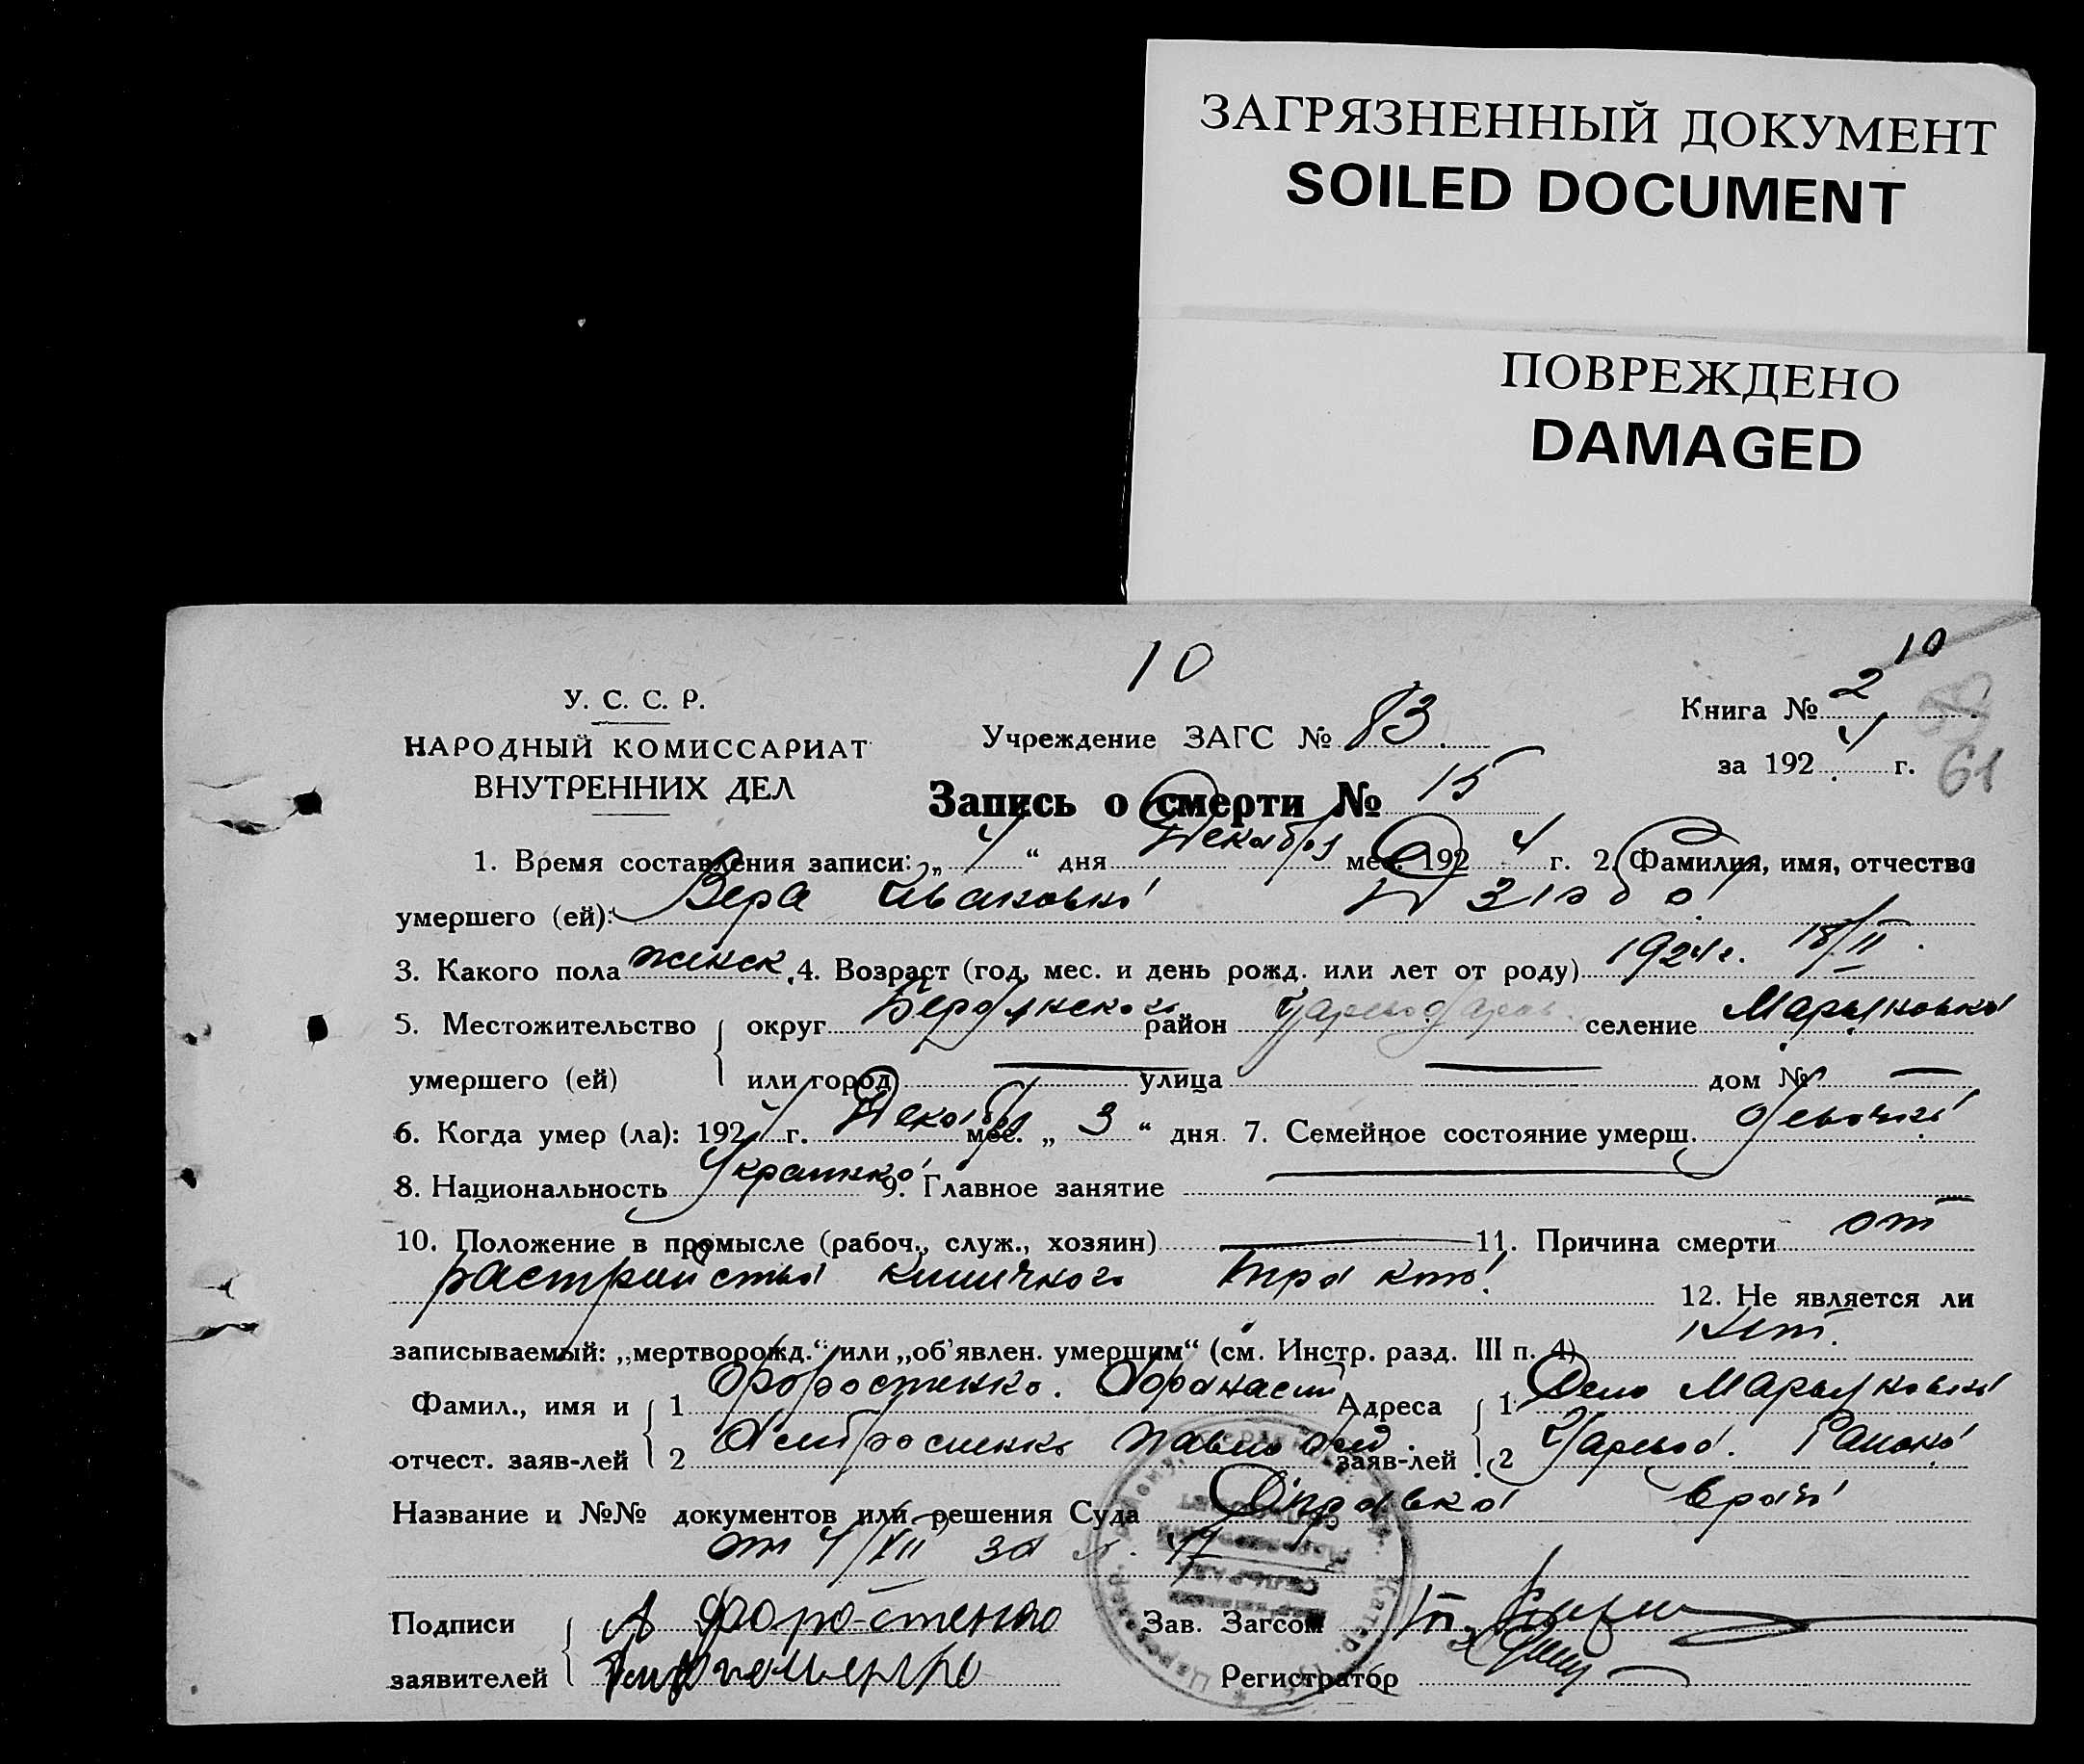 ЗАГРЯЗНЕННЫЙ ДОКУМЕНТ
SOILED DOCUMENT
ПОВРЕЖДЕНО
DAMAGED
10
10
У. С. С. Р.
НАРОДНЫЙ КОМИССАРИАТ
ВНУТРЕННИХ ДЕЛ
Учреждение ЗАГС № 83
Книга № 2
за 192 4 г.
61
Запись о смерти № 15
1. Время составления записи: „ 4 “ дня Декабря мес. 192 4 г. 2. Фамилия, имя, отчество
умершего (ей): Вера Ивановна
3. Какого пола женск 4. Возраст (год, мес. и день рожд. или лет от роду) 1924 г. 18/II
5. Местожительство округ Бердянского район селение Марьяновка
умершего (ей) или город — улица — дом № —
6. Когда умер (ла): 192 4 г. Декабря мес. „ 3 “ дня. 7. Семейное состояние умерш. девочка
8. Национальность Украинка 9. Главное занятие —
10. Положение в промысле (рабоч., служ., хозяин) — 11. Причина смерти от
растройства кишечного тракта
12. Не является ли
записываемый: „мертворожд.“ или „об'явлен. умершим“ (см. Инстр. разд. III п. 4) Нет.
Фамил., имя и 1 Афанасий Адреса 1 Село Марьяновка
отчест. заяв-лей 2 Павло заяв-лей 2 Царевод. Района
Название и №№ документов или решения Суда Справка врача
от 4/XII за №
Подписи Зав. Загсом
заявителей Регистратор